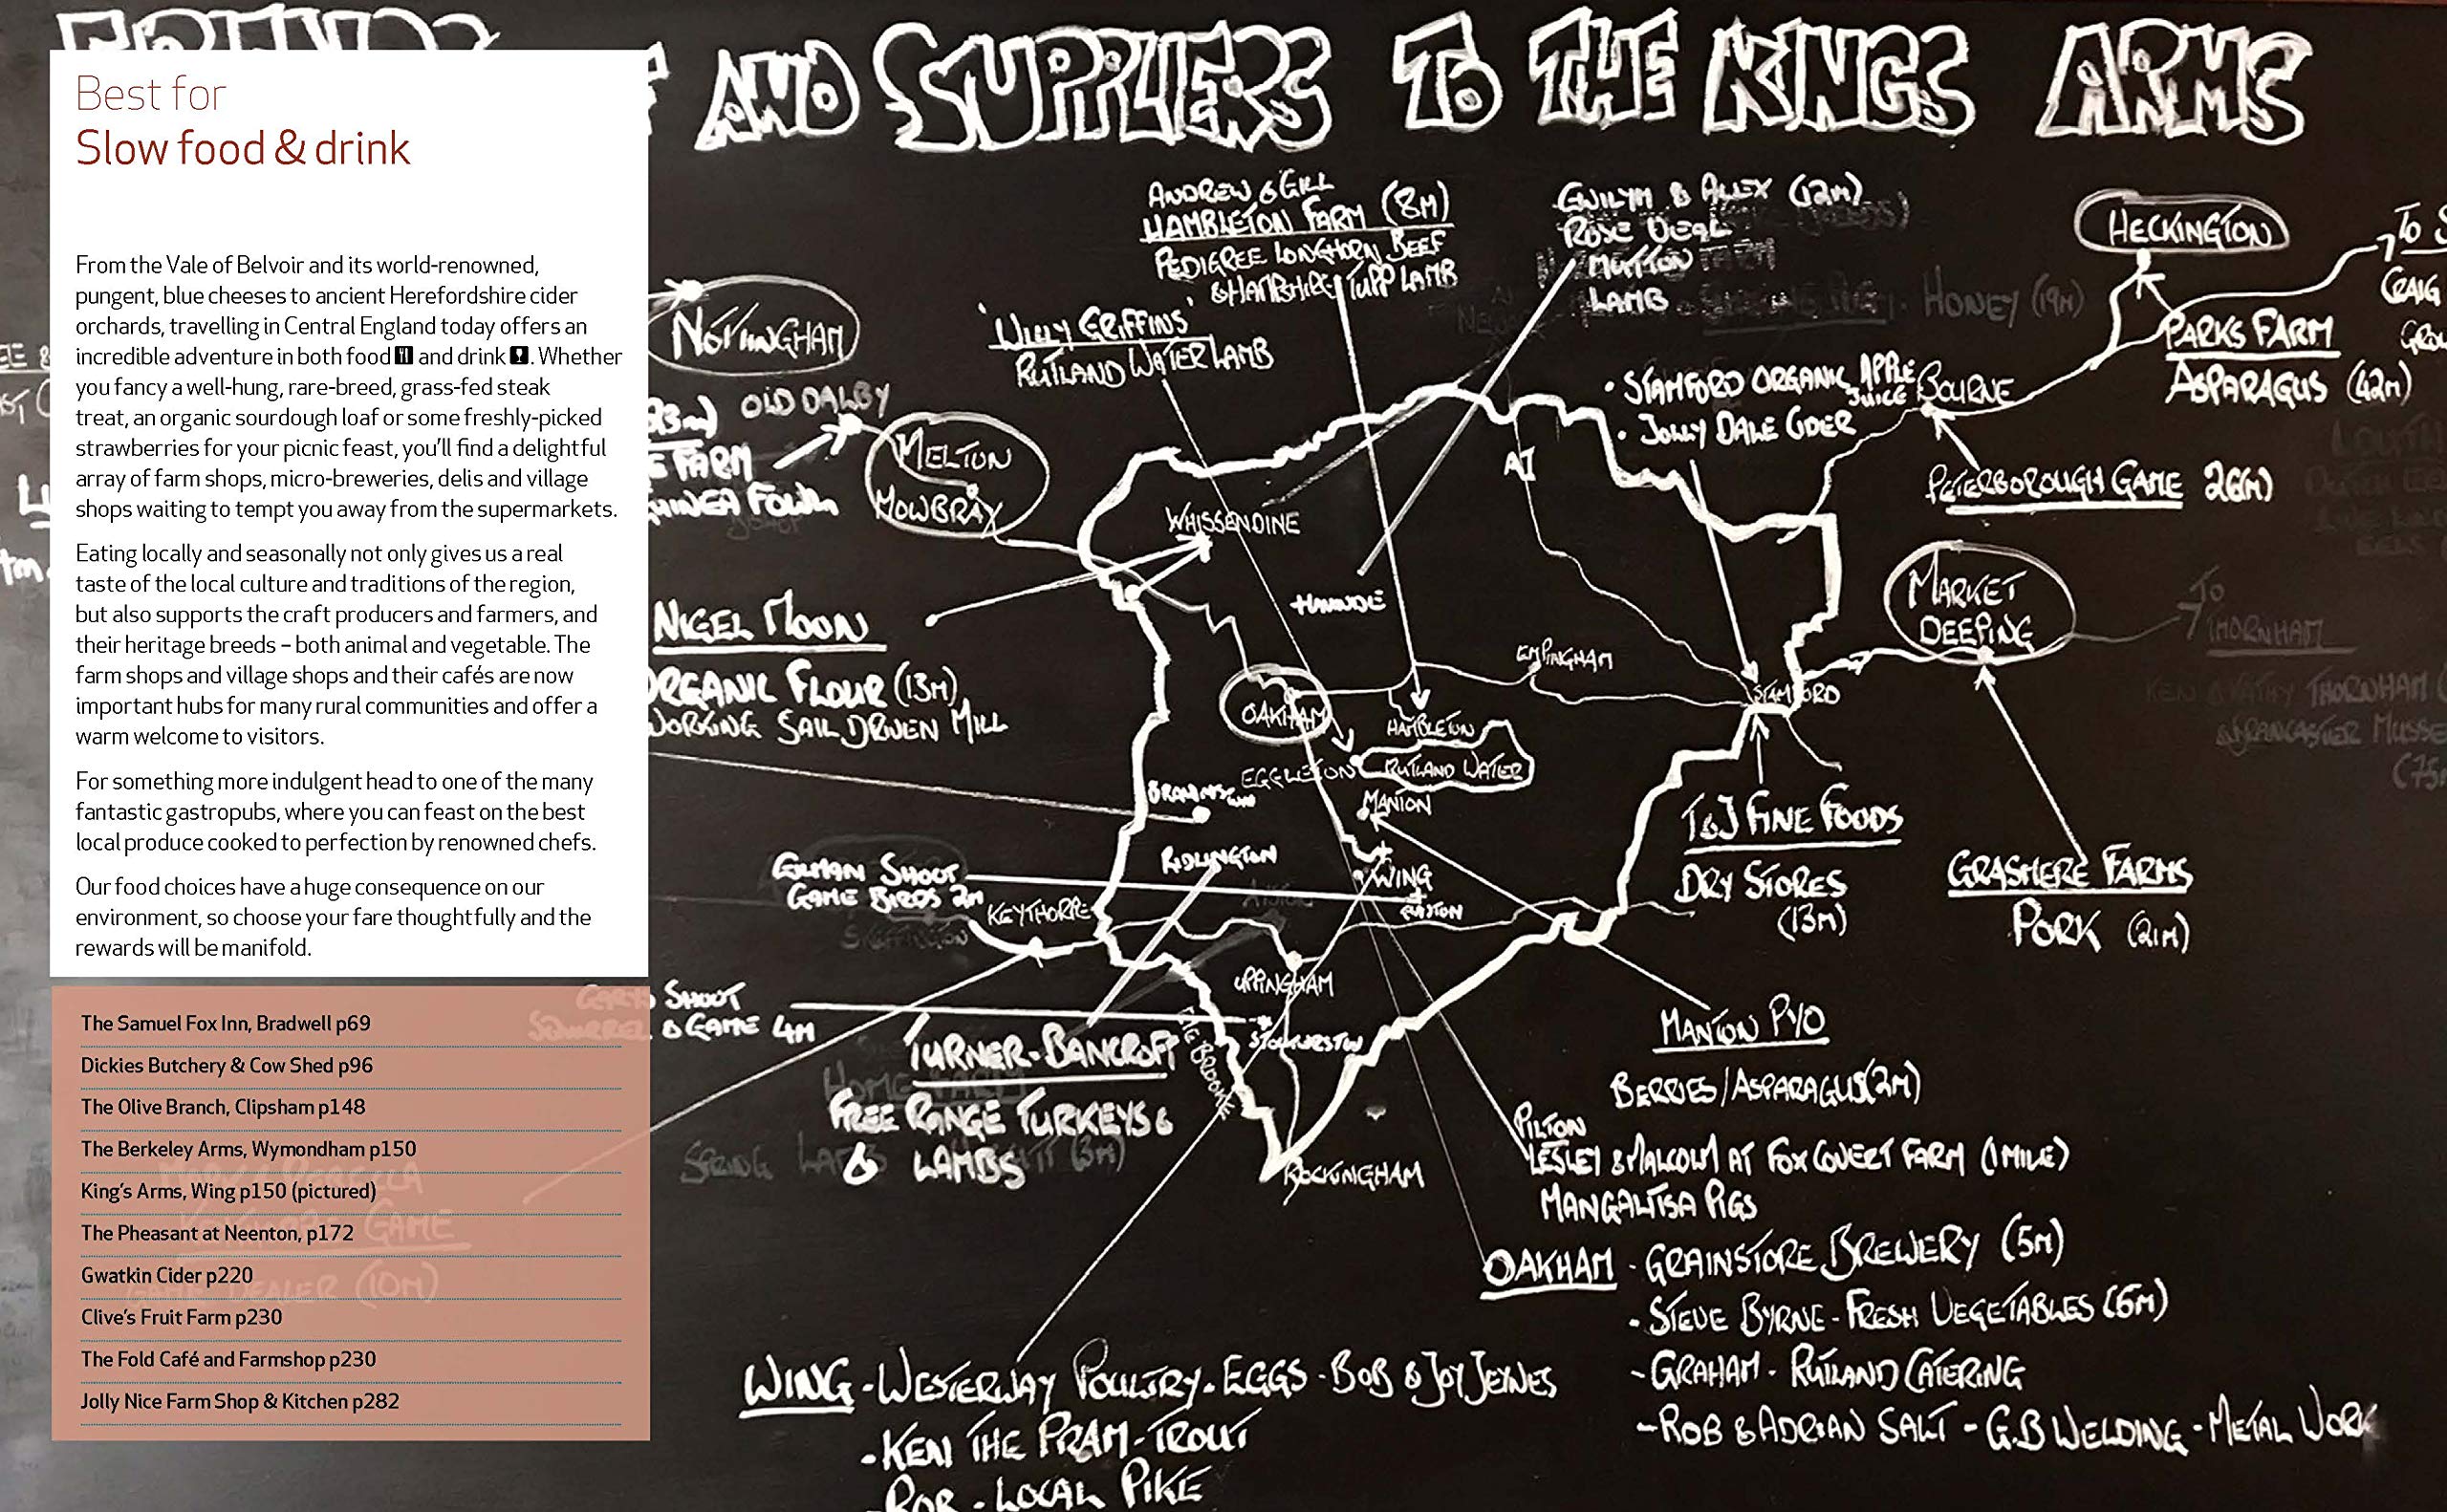 AND SUPPLIERS TO THE KINGS ARMS
Best for
Slow food & drink
From the Vale of Belvoir and its world-renowned,
pungent, blue cheeses to ancient Herefordshire cider
orchards, travelling in Central England today offers an
incredible adventure in both food and drink . Whether
you fancy a well-hung, rare-breed, grass-fed steak
treat, an organic sourdough loaf or some freshly-picked
strawberries for your picnic feast, you'll find a delightful
array of farm shops, micro-breweries, delis and village
shops waiting to tempt you away from the supermarkets.
Eating locally and seasonally not only gives us a real
taste of the local culture and traditions of the region,
but also supports the craft producers and farmers, and
their heritage breeds – both animal and vegetable. The
farm shops and village shops and their cafés are now
important hubs for many rural communities and offer a
warm welcome to visitors.
For something more indulgent head to one of the many
fantastic gastropubs, where you can feast on the best
local produce cooked to perfection by renowned chefs.
Our food choices have a huge consequence on our
environment, so choose your fare thoughtfully and the
rewards will be manifold.
The Samuel Fox Inn, Bradwell p69
Dickies Butchery & Cow Shed p96
The Olive Branch, Clipsham p148
The Berkeley Arms, Wymondham p150
King's Arms, Wing p150 (pictured)
The Pheasant at Neenton, p172
Gwatkin Cider p220
Clive's Fruit Farm p230
The Fold Café and Farmshop p230
Jolly Nice Farm Shop & Kitchen p282
GAME
DEALER (10M)
ANDREW & GILL
HAMBLETON FARM (8M)
PEDIGREE LONGHORN BEEF
& HAMPSHIRE TUPP LAMB
GWILYM & ALEX (12M)
ROSE VEAL
MUTTON
LAMB
HONEY (19M)
HECKINGTON
TO
CRAIG
PARKS FARM
ASPARAGUS (42M)
NOTTINGHAM
'WILLY GRIFFINS'
RUTLAND WATER LAMB
OLD DALBY
FARM
GUINEA FOWL
MELTON
MOWBRAY
• STAMFORD ORGANIC APPLE
JUICE
• JOLLY DALE CIDER
BOURNE
PETERBOROUGH GAME 26(M)
A1
WHISSENDINE
NIGEL MOON
ORGANIC FLOUR (13M)
WORKING SAIL DRIVEN MILL
EMPINGHAM
MARKET
DEEPING
TO
THORNHAM
OAKHAM
HAMBLETON
STAMFORD
EGGLETON
RUTLAND WATER
MANTON
T&J FINE FOODS
DRY STORES
(13M)
GRASMERE FARMS
PORK (21M)
RIDLINGTON
WING
COLMAN SHOOT
GAME BIRDS 2M
KEYTHORPE
UPPINGHAM
SHOOT
& GAME 4M
TURNER-BANCROFT
FREE RANGE TURKEYS &
& LAMBS
ROCKINGHAM
MANTON PYO
BERRIES/ASPARAGUS (2M)
PILTON
LESLEY & MALCOLM AT FOX COVERT FARM (1 MILE)
MANGALITSA PIGS
OAKHAM - GRAINSTORE BREWERY (5M)
- STEVE BYRNE - FRESH VEGETABLES (6M)
- GRAHAM - RUTLAND CATERING
- ROB & ADRIAN SALT - G.B WELDING - METAL WORK
WING - WESTERWAY POULTRY - EGGS - BOB & JOY JEYNES
- KEN THE PRAM - TROUT
- ROB - LOCAL PIKE